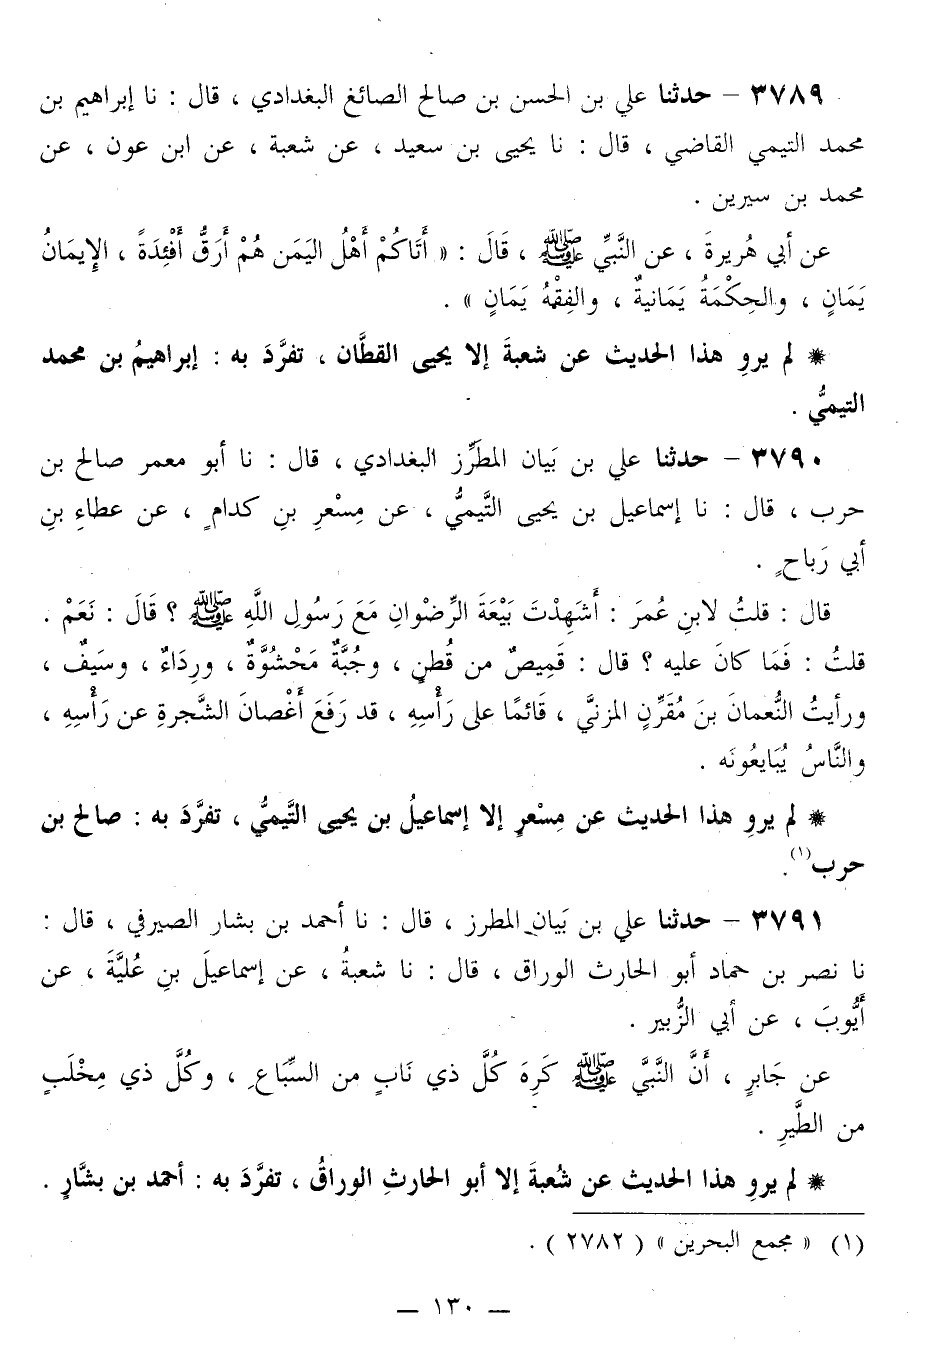 ٣٧٨٩ - حدثنا علي بن الحسن بن صالح الصائغ البغدادي ، قال : نا إبراهيم بن
محمد التيمي القاضي ، قال : نا يحيى بن سعيد ، عن شعبة ، عن ابن عون ، عن
محمد بن سيرين .
عن أبي هُريرةَ ، عن النَّبيِّ ﷺ ، قَالَ : « أَتَاكُمْ أَهْلُ اليَمَن هُمْ أَرَقُّ أَفْئِدَةً ، الإِيمَانُ
يَمَانٍ ، والحِكْمَةُ يَمَانيةٌ ، والفِقْهُ يَمَانٍ » .
* لم يروِ هذا الحديث عن شعبةَ إلا يحيى القطَّان ، تفرَّدَ به : إبراهيمُ بن محمد
التيميُّ .
٣٧٩٠ - حدثنا علي بن بَيان المطَرِّز البغدادي ، قال : نا أبو معمر صالح بن
حرب ، قال : نا إسماعيل بن يحيى التَّيميُّ ، عن مِسْعرِ بنِ كدامٍ ، عن عطاءِ بنِ
أبي رَباحٍ .
قال : قلتُ لابنِ عُمرَ : أَشَهِدْتَ بَيْعَةَ الرِّضْوانِ مَعَ رَسُولِ اللَّهِ ﷺ ؟ قَالَ : نَعَمْ .
قلتُ : فَمَا كانَ عليه ؟ قال : قَمِيصٌ من قُطنٍ ، وجُبَّةٌ مَحْشُوَّةٌ ، ورِدَاءٌ ، وسَيفٌ ،
ورأيتُ النُّعمانَ بنَ مُقَرِّنٍ المزنيَّ ، قَائمًا على رَأْسِهِ ، قد رَفَعَ أَغْصانَ الشَّجرةِ عن رَأْسِهِ ،
والنَّاسُ يُبَايعُونَه .
* لم يروِ هذا الحديث عن مِسْعرٍ إلا إسماعيلُ بن يحيى التَّيميُّ ، تفرَّدَ به : صالح بن
حرب(١).
٣٧٩١ - حدثنا علي بن بَيان المطرز ، قال : نا أحمد بن بشار الصيرفي ، قال :
نا نصر بن حماد أبو الحارث الوراق ، قال : نا شعبةُ ، عن إسماعيلَ بنِ عُليَّةَ ، عن
أَيُّوبَ ، عن أبي الزُّبير .
عن جَابرٍ ، أَنَّ النَّبيَّ ﷺ كَرِهَ كُلَّ ذي نَابٍ من السِّبَاعِ ، وكُلَّ ذي مِخْلَبٍ
من الطَّيرِ .
* لم يروِ هذا الحديث عن شُعبةَ إلا أبو الحارثِ الوراقُ ، تفرَّدَ به : أحمد بن بشَّارٍ .
(١) « مجمع البحرين » ( ٢٧٨٢ ) .
— ١٣٠ —